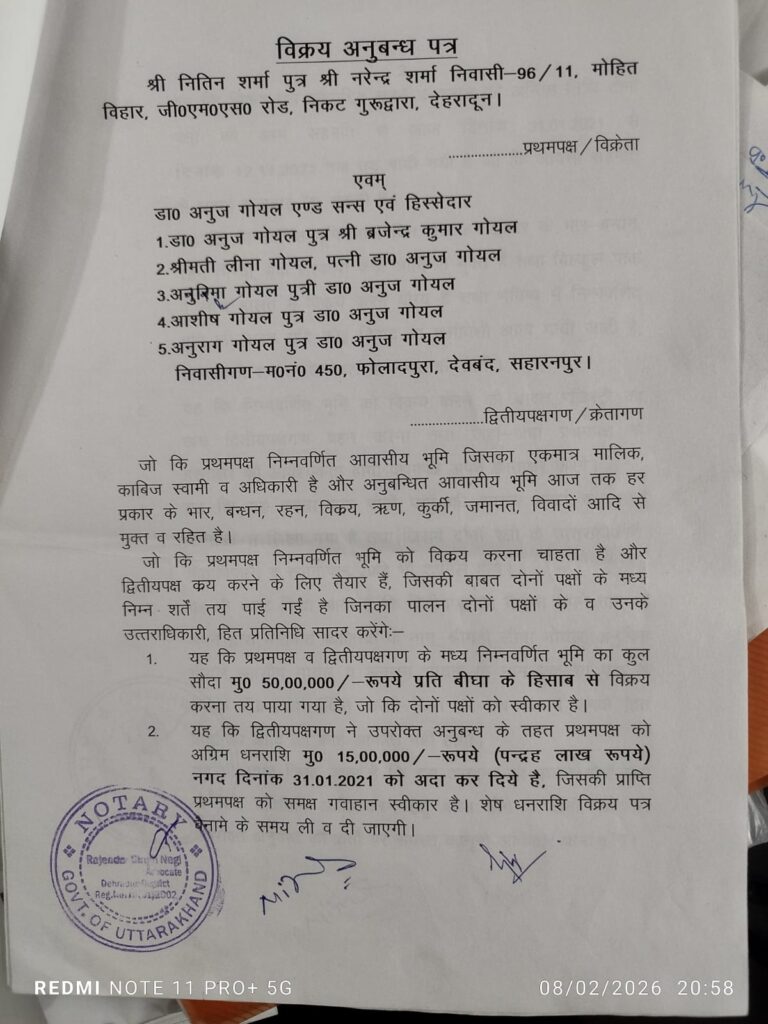 विक्रय अनुबन्ध पत्र
श्री नितिन शर्मा पुत्र श्री नरेन्द्र शर्मा निवासी–96/11, मोहित
विहार, जी0एम0एस0 रोड, निकट गुरूद्वारा, देहरादून।
.....................प्रथमपक्ष/विक्रेता
एवम्
डा0 अनुज गोयल एण्ड सन्स एवं हिस्सेदार
1.डा0 अनुज गोयल पुत्र श्री ब्रजेन्द्र कुमार गोयल
2.श्रीमती लीना गोयल, पत्नी डा0 अनुज गोयल
3.अनुरिमा गोयल पुत्री डा0 अनुज गोयल
4.आशीष गोयल पुत्र डा0 अनुज गोयल
5.अनुराग गोयल पुत्र डा0 अनुज गोयल
निवासीगण–म0नं0 450, फोलादपुरा, देवबंद, सहारनपुर।
.....................द्वितीयपक्षगण/क्रेतागण
जो कि प्रथमपक्ष निम्नवर्णित आवासीय भूमि जिसका एकमात्र मालिक,
काबिज स्वामी व अधिकारी है और अनुबन्धित आवासीय भूमि आज तक हर
प्रकार के भार, बन्धन, रहन, विक्रय, ऋण, कुर्की, जमानत, विवादों आदि से
मुक्त व रहित है।
जो कि प्रथमपक्ष निम्नवर्णित भूमि को विक्रय करना चाहता है और
द्वितीयपक्ष क्रय करने के लिए तैयार हैं, जिसकी बाबत दोनों पक्षों के मध्य
निम्न शर्ते तय पाई गई है जिनका पालन दोनों पक्षों के व उनके
उत्तराधिकारी, हित प्रतिनिधि सादर करेंगेः–
1. यह कि प्रथमपक्ष व द्वितीयपक्षगण के मध्य निम्नवर्णित भूमि का कुल
सौदा मु0 50,00,000/–रूपये प्रति बीघा के हिसाब से विक्रय
करना तय पाया गया है, जो कि दोनों पक्षों को स्वीकार है।
2. यह कि द्वितीयपक्षगण ने उपरोक्त अनुबन्ध के तहत प्रथमपक्ष को
अग्रिम धनराशि मु0 15,00,000/–रूपये (पन्द्रह लाख रूपये)
नगद दिनांक 31.01.2021 को अदा कर दिये है, जिसकी प्राप्ति
प्रथमपक्ष को समक्ष गवाहान स्वीकार है। शेष धनराशि विक्रय पत्र
बैनामे के समय ली व दी जाएगी।
NOTARY
Rajender Negi
Advocate
Dehradun District
GOVT. OF UTTARAKHAND
REDMI NOTE 11 PRO+ 5G
08/02/2026 20:58